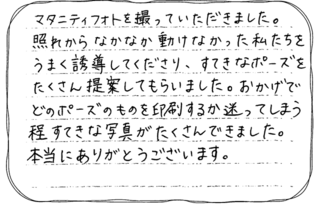 マタニティフォトを撮っていただきました。
照れからなかなか動けなかった私たちを
うまく誘導してくださり、すてきなポーズを
たくさん提案してもらいました。おかげで
どのポーズのものを印刷するか迷ってしまう
程すてきな写真がたくさんできました。
本当にありがとうございます。